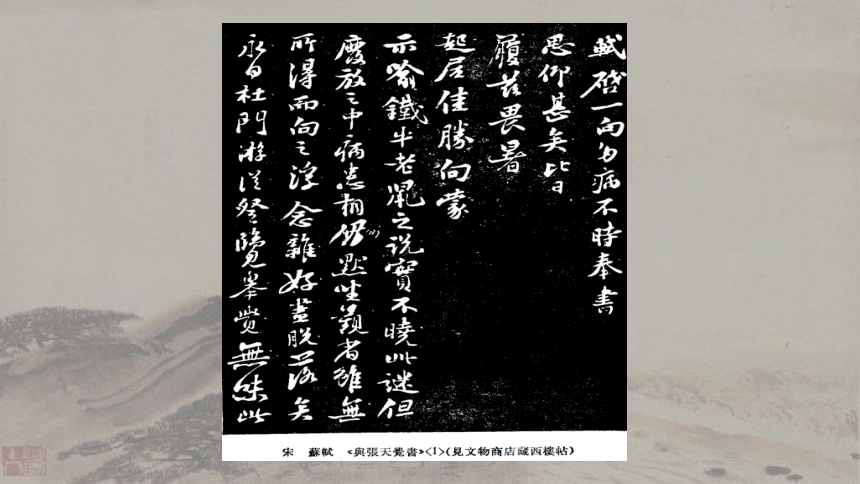 軾啓一向多病不時奉書
思仰甚矣比日
履茲畏暑
起居佳勝向蒙
示喻鐵牛老鼠之說實不曉此謎但
廢放之中病患相仍默坐觀省雖無
所得而向之浮念雜好盡脫落矣
永日杜門游從登覽舉覺無味此
宋 蘇軾 《與張天覺書》〈1〉(見文物商店藏西樓帖)